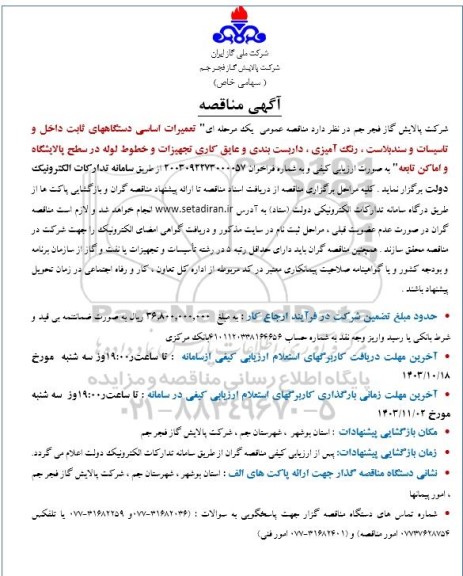 شرکت ملی گاز ایران
شرکت پالایش گاز فجر جم
( سهامی خاص)
آگهی مناقصه
شرکت پالایش گاز فجر جم در نظر دارد مناقصه عمومی یک مرحله ای" تعمیرات اساسی دستگاههای ثابت داخل و
تاسیسات و سندبلاست ، رنگ آمیزی ، داربست بندی و عایق کاری تجهیزات و خطوط لوله در سطح پالایشگاه
و اماکن تابعه" به صورت ارزیابی کیفی و به شماره فراخوان ۲۰۰۳۰۹۲۲۷۳۰۰۰۰۵۷ از طریق سامانه تدارکات الکترونیک
دولت برگزار نماید . کلیه مراحل برگزاری مناقصه از دریافت اسناد مناقصه تا ارائه پیشنهاد مناقصه گران و بازگشایی پاکت ها از
طریق درگاه سامانه تدارکات الکترونیکی دولت (ستاد) به آدرس www.setadiran.ir انجام خواهد شد و لازم است مناقصه
گران در صورت عدم عضویت قبلی ، مراحل ثبت نام در سایت مذکور و دریافت گواهی امضای الکترونیک را جهت شرکت در
مناقصه محقق سازند . همچنین مناقصه گران باید دارای حداقل رتبه ۵ در رشته تأسیسات و تجهیزات یا نفت و گاز از سازمان برنامه
و بودجه کشور و یا گواهینامه صلاحیت پیمانکاری معتبر در کد مربوطه از اداره کل تعاون ، کار و رفاه اجتماعی در زمان تحویل
پیشنهاد باشند .
• حدود مبلغ تضمین شرکت در فرآیند ارجاع کار : به مبلغ ۳۶,۸۰۰,۰۰۰,۰۰۰ ریال به صورت ضمانتنمه بی قید و
شرط بانکی یا رسید واریز وجه نقد به شماره حساب بانک مرکزی
• آخرین مهلت دریافت کاربرگهای استعلام ارزیابی کیفی ازسامانه : تا ساعت۱۹:۰۰روز سه شنبه مورخ
۱۴۰۳/۱۰/۱۸
• آخرین مهلت زمانی بارگذاری کاربرگهای استعلام ارزیابی کیفی در سامانه : تا ساعت۱۹:۰۰روز سه شنبه
مورخ ۱۴۰۳/۱۱/۰۲
• مکان بازگشایی پیشنهادات : استان بوشهر ، شهرستان جم ، شرکت پالایش گاز فجر جم
• زمان بازگشایی پیشنهادات: پس از ارزیابی کیفی مناقصه گران از طریق سامانه تدارکات الکترونیک دولت اعلام می گردد.
• نشانی دستگاه مناقصه گذار جهت ارائه پاکت های الف : استان بوشهر ، شهرستان جم ، شرکت پالایش گاز فجر جم
، امور پیمانها
• شماره تماس های دستگاه مناقصه گزار جهت پاسخگویی به سوالات : (۳۱۶۸۲۰۳۶-۰۷۷و ۳۱۶۸۲۲۵۹-۰۷۷ یا تلفکس
۰۷۷۳۷۶۲۸۷۵۴ امور مناقصه) و (۳۱۶۸۲۴۰۱-۰۷۷ امور فنی)
پایگاه اطلاع رسانی مناقصه و مزایده
۰۲۱-۸۸۳۴۹۶۷۰-۵